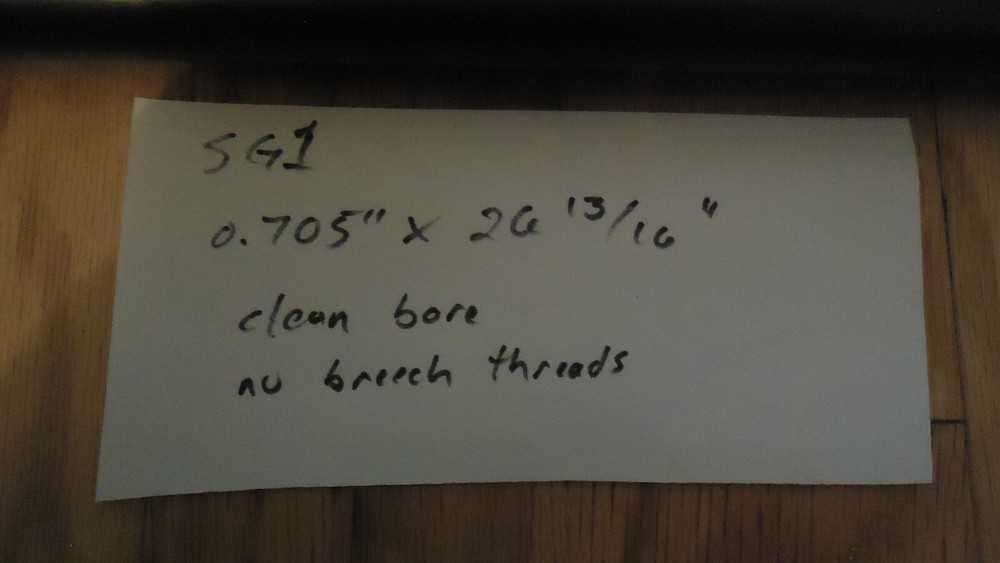 SG1
0.705" x 26 13/16"
clean bore
no breech threads